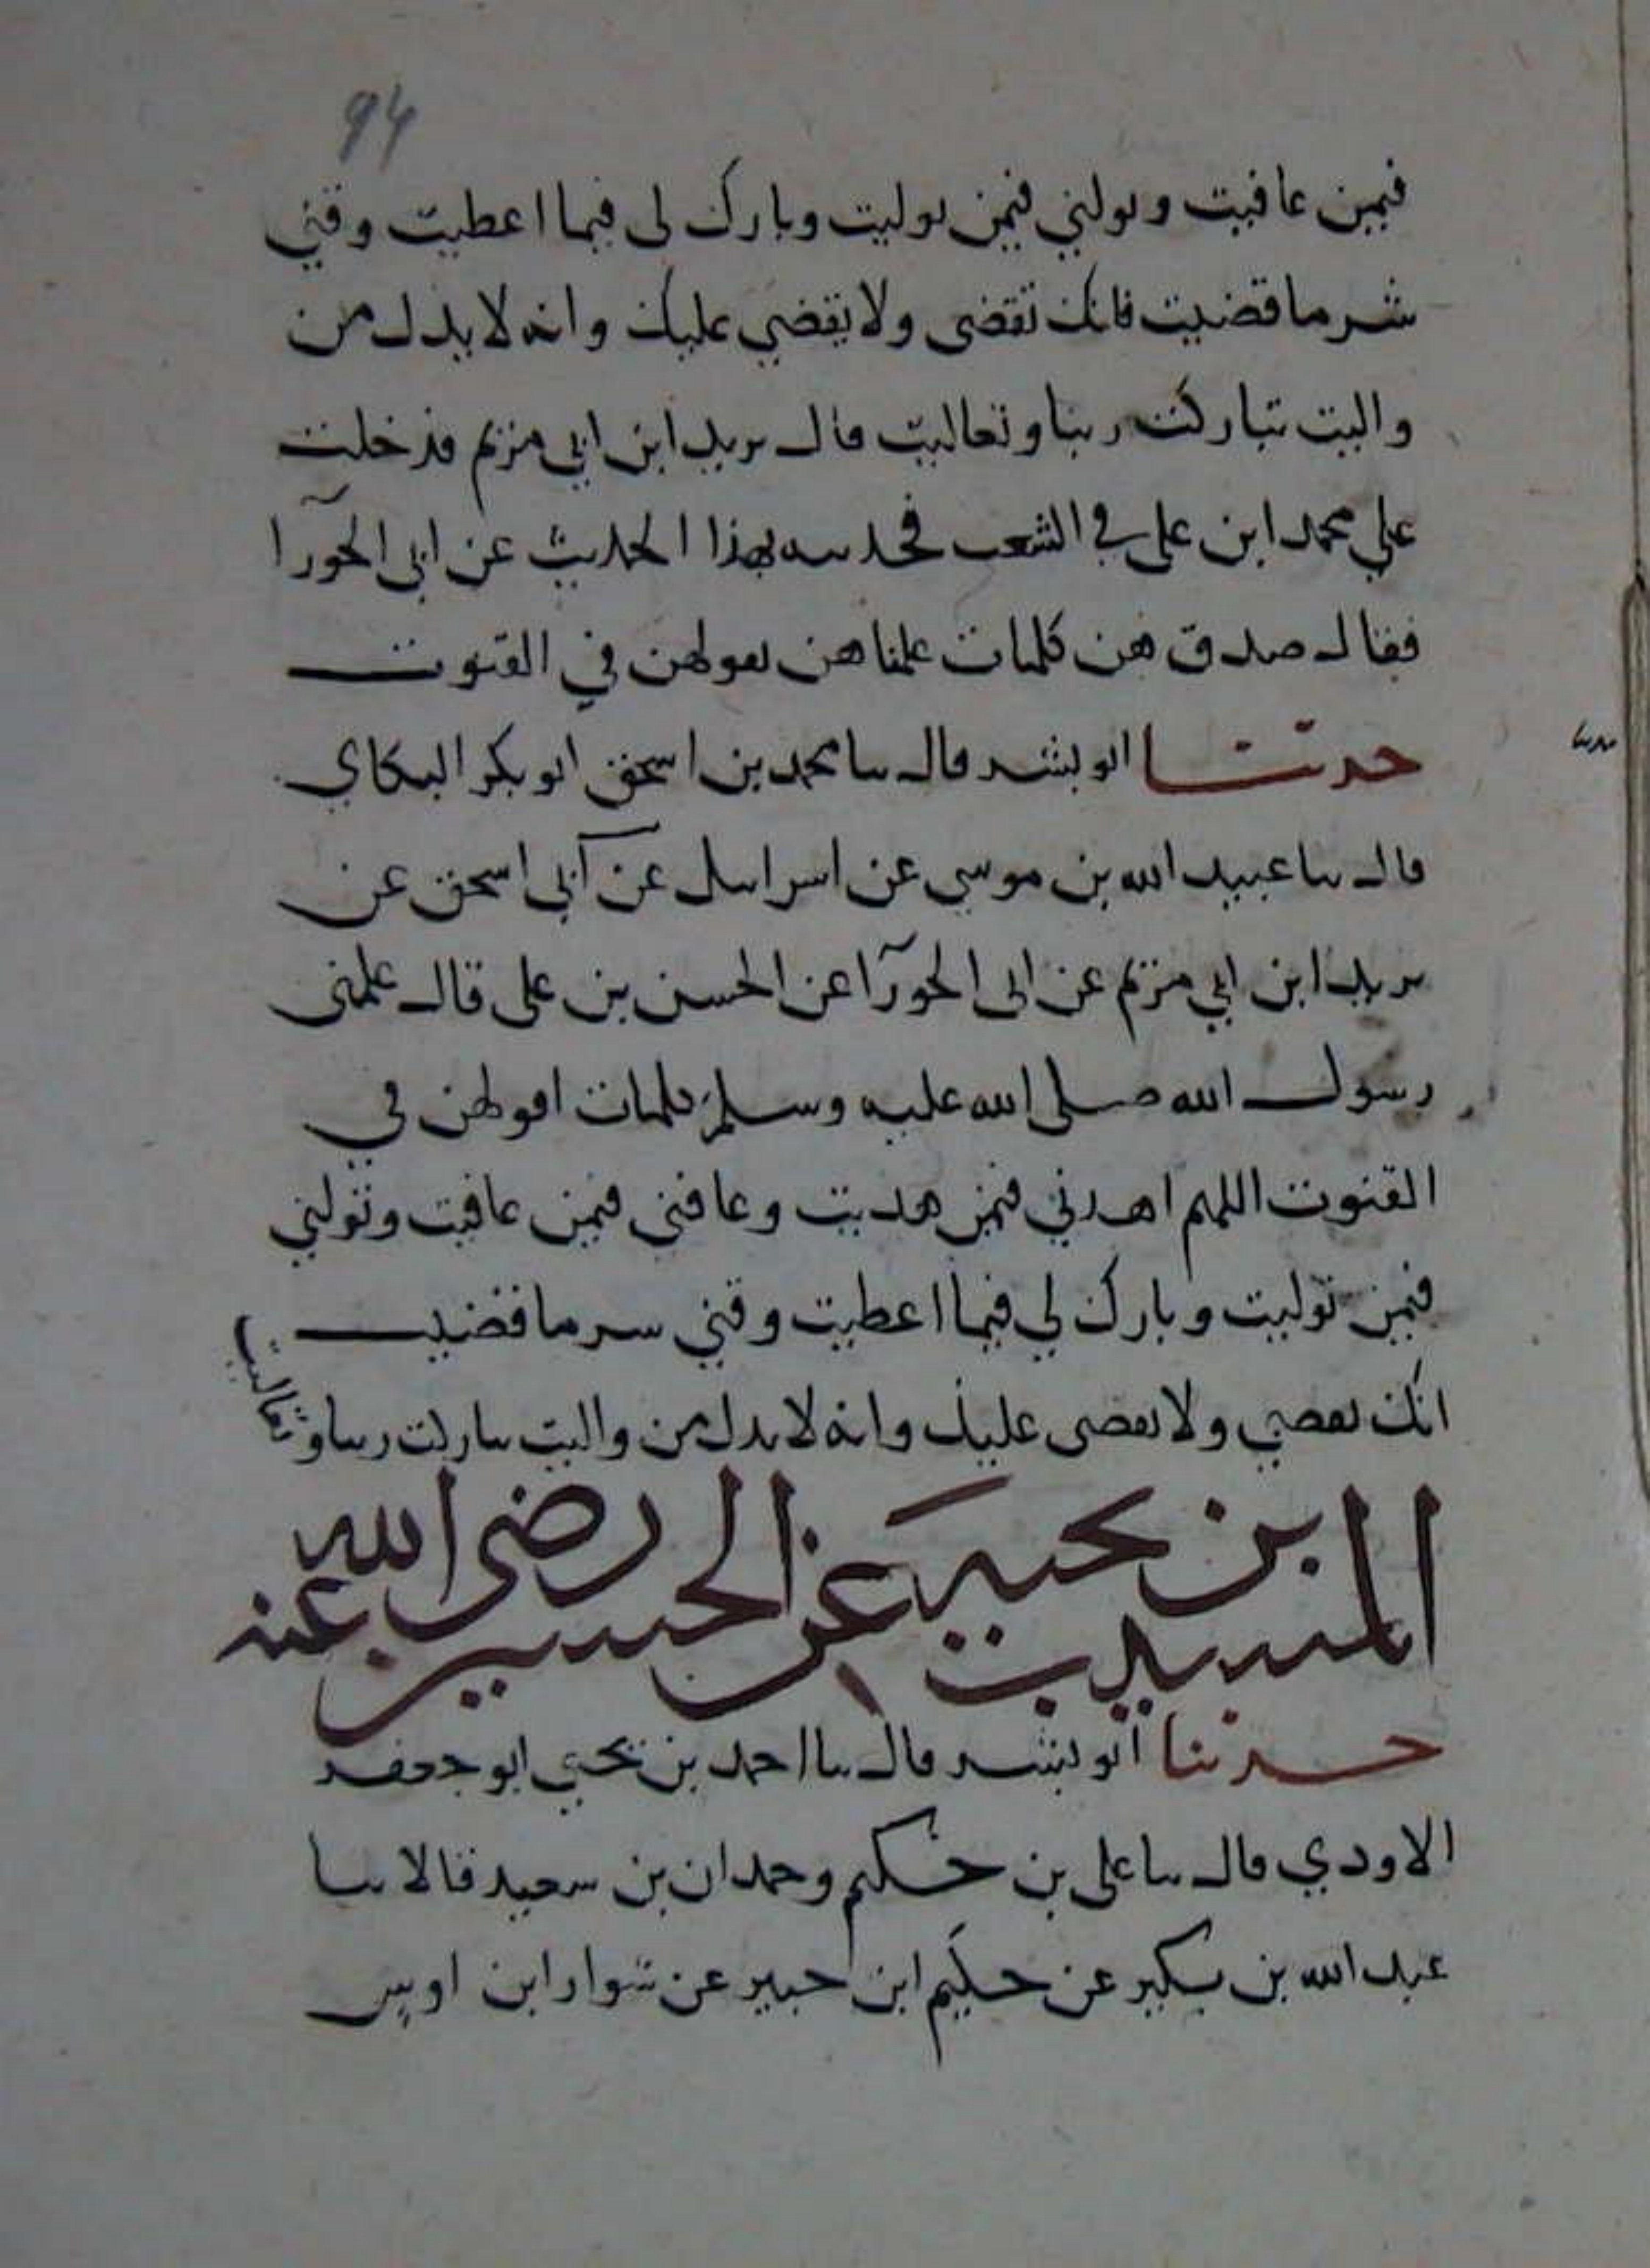 94
فيمن عافيت وتولني فيمن توليت وبارك لى فيما اعطيت وقني
شر ما قضيت فانك تقضى ولا يقضي عليك وانه لا يذل من
واليت تباركت ربنا وتعاليت قال بريد ابن ابي مريم فدخلت
علي محمد ابن على في الشعب فحدثته بهذا الحديث عن ابى الحورآ
فقال صدق هن كلمات علمناهن نقولهن في القنوت
حدثنا ابو بشر قال ثنا محمد بن اسحق ابو بكر البكاي
قال ثنا عبيد الله بن موسي عن اسرائيل عن أبي اسحق عن
بريد ابن ابي مريم عن ابى الحورآ عن الحسن بن على قال علمنى
رسول الله صلى الله عليه وسلم كلمات اقولهن في
القنوت اللهم اهدني فيمن هديت وعافنى فيمن عافيت وتولني
فيمن توليت وبارك لي فيما اعطيت وقني شر ما قضيت
انك تقضي ولا يقضى عليك وانه لا يذل من واليت تباركت ربنا وتعاليت
المسيب بن نجبة عن الحسين رضى الله عنه
حدثنا ابو بشر قال ثنا احمد بن يحيي ابو جعفر
الاودي قال ثنا على بن حكيم وحمدان بن سعيد قالا ثنا
عبد الله بن بكير عن حكيم ابن جبير عن سوار ابن اويس